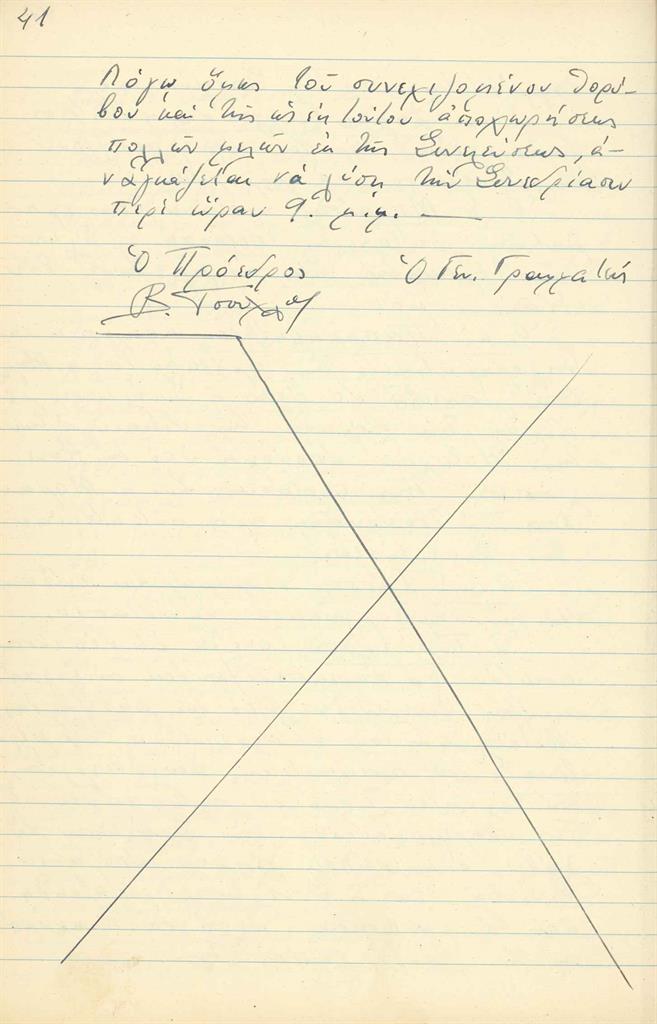 41
Λόγῳ ὅμως τοῦ συνεχιζομένου θορύ-
βου καὶ τῆς ὡς ἐκ τούτου ἀποχωρήσεως
πολλῶν μελῶν ἐκ τῆς Συνελεύσεως, ἀ-
ναγκάζεται νὰ λύσῃ τὴν Συνεδρίασιν
περὶ ὥραν 9ην μ.μ. —
Ὁ Πρόεδρος Ὁ Γεν. Γραμματεύς
Β.